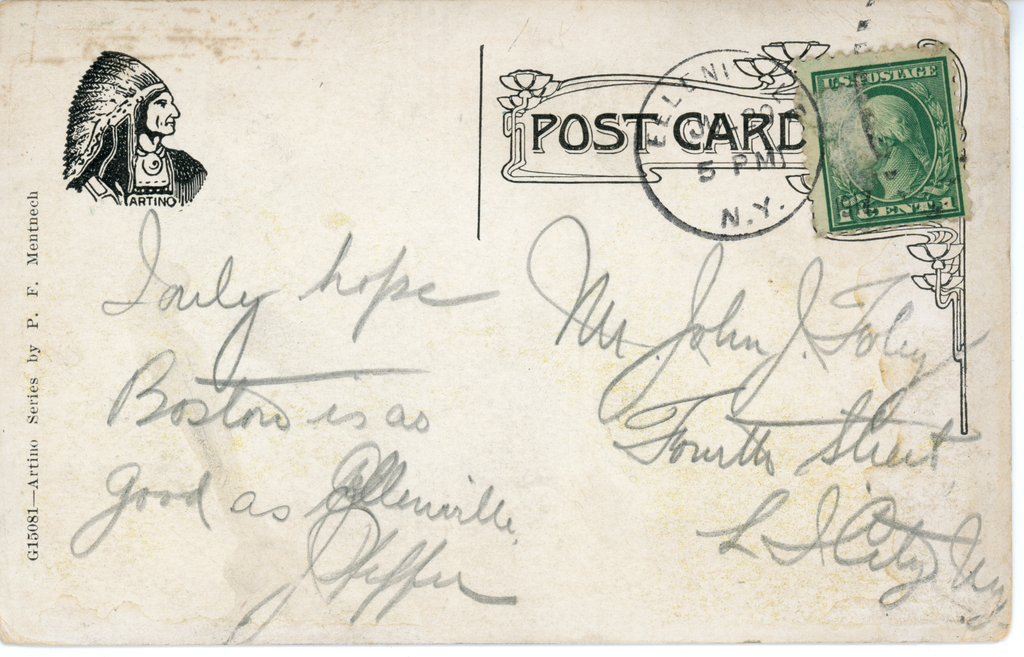 ARTINO
G15081—Artino Series by P. F. Mentnech
POST CARD
5 PM
N.Y.
U.S. POSTAGE
I only hope
Boston is as
good as Ellenville
J Pfeffer
Mr. John J. Foley
Fourth Street
L I City NY